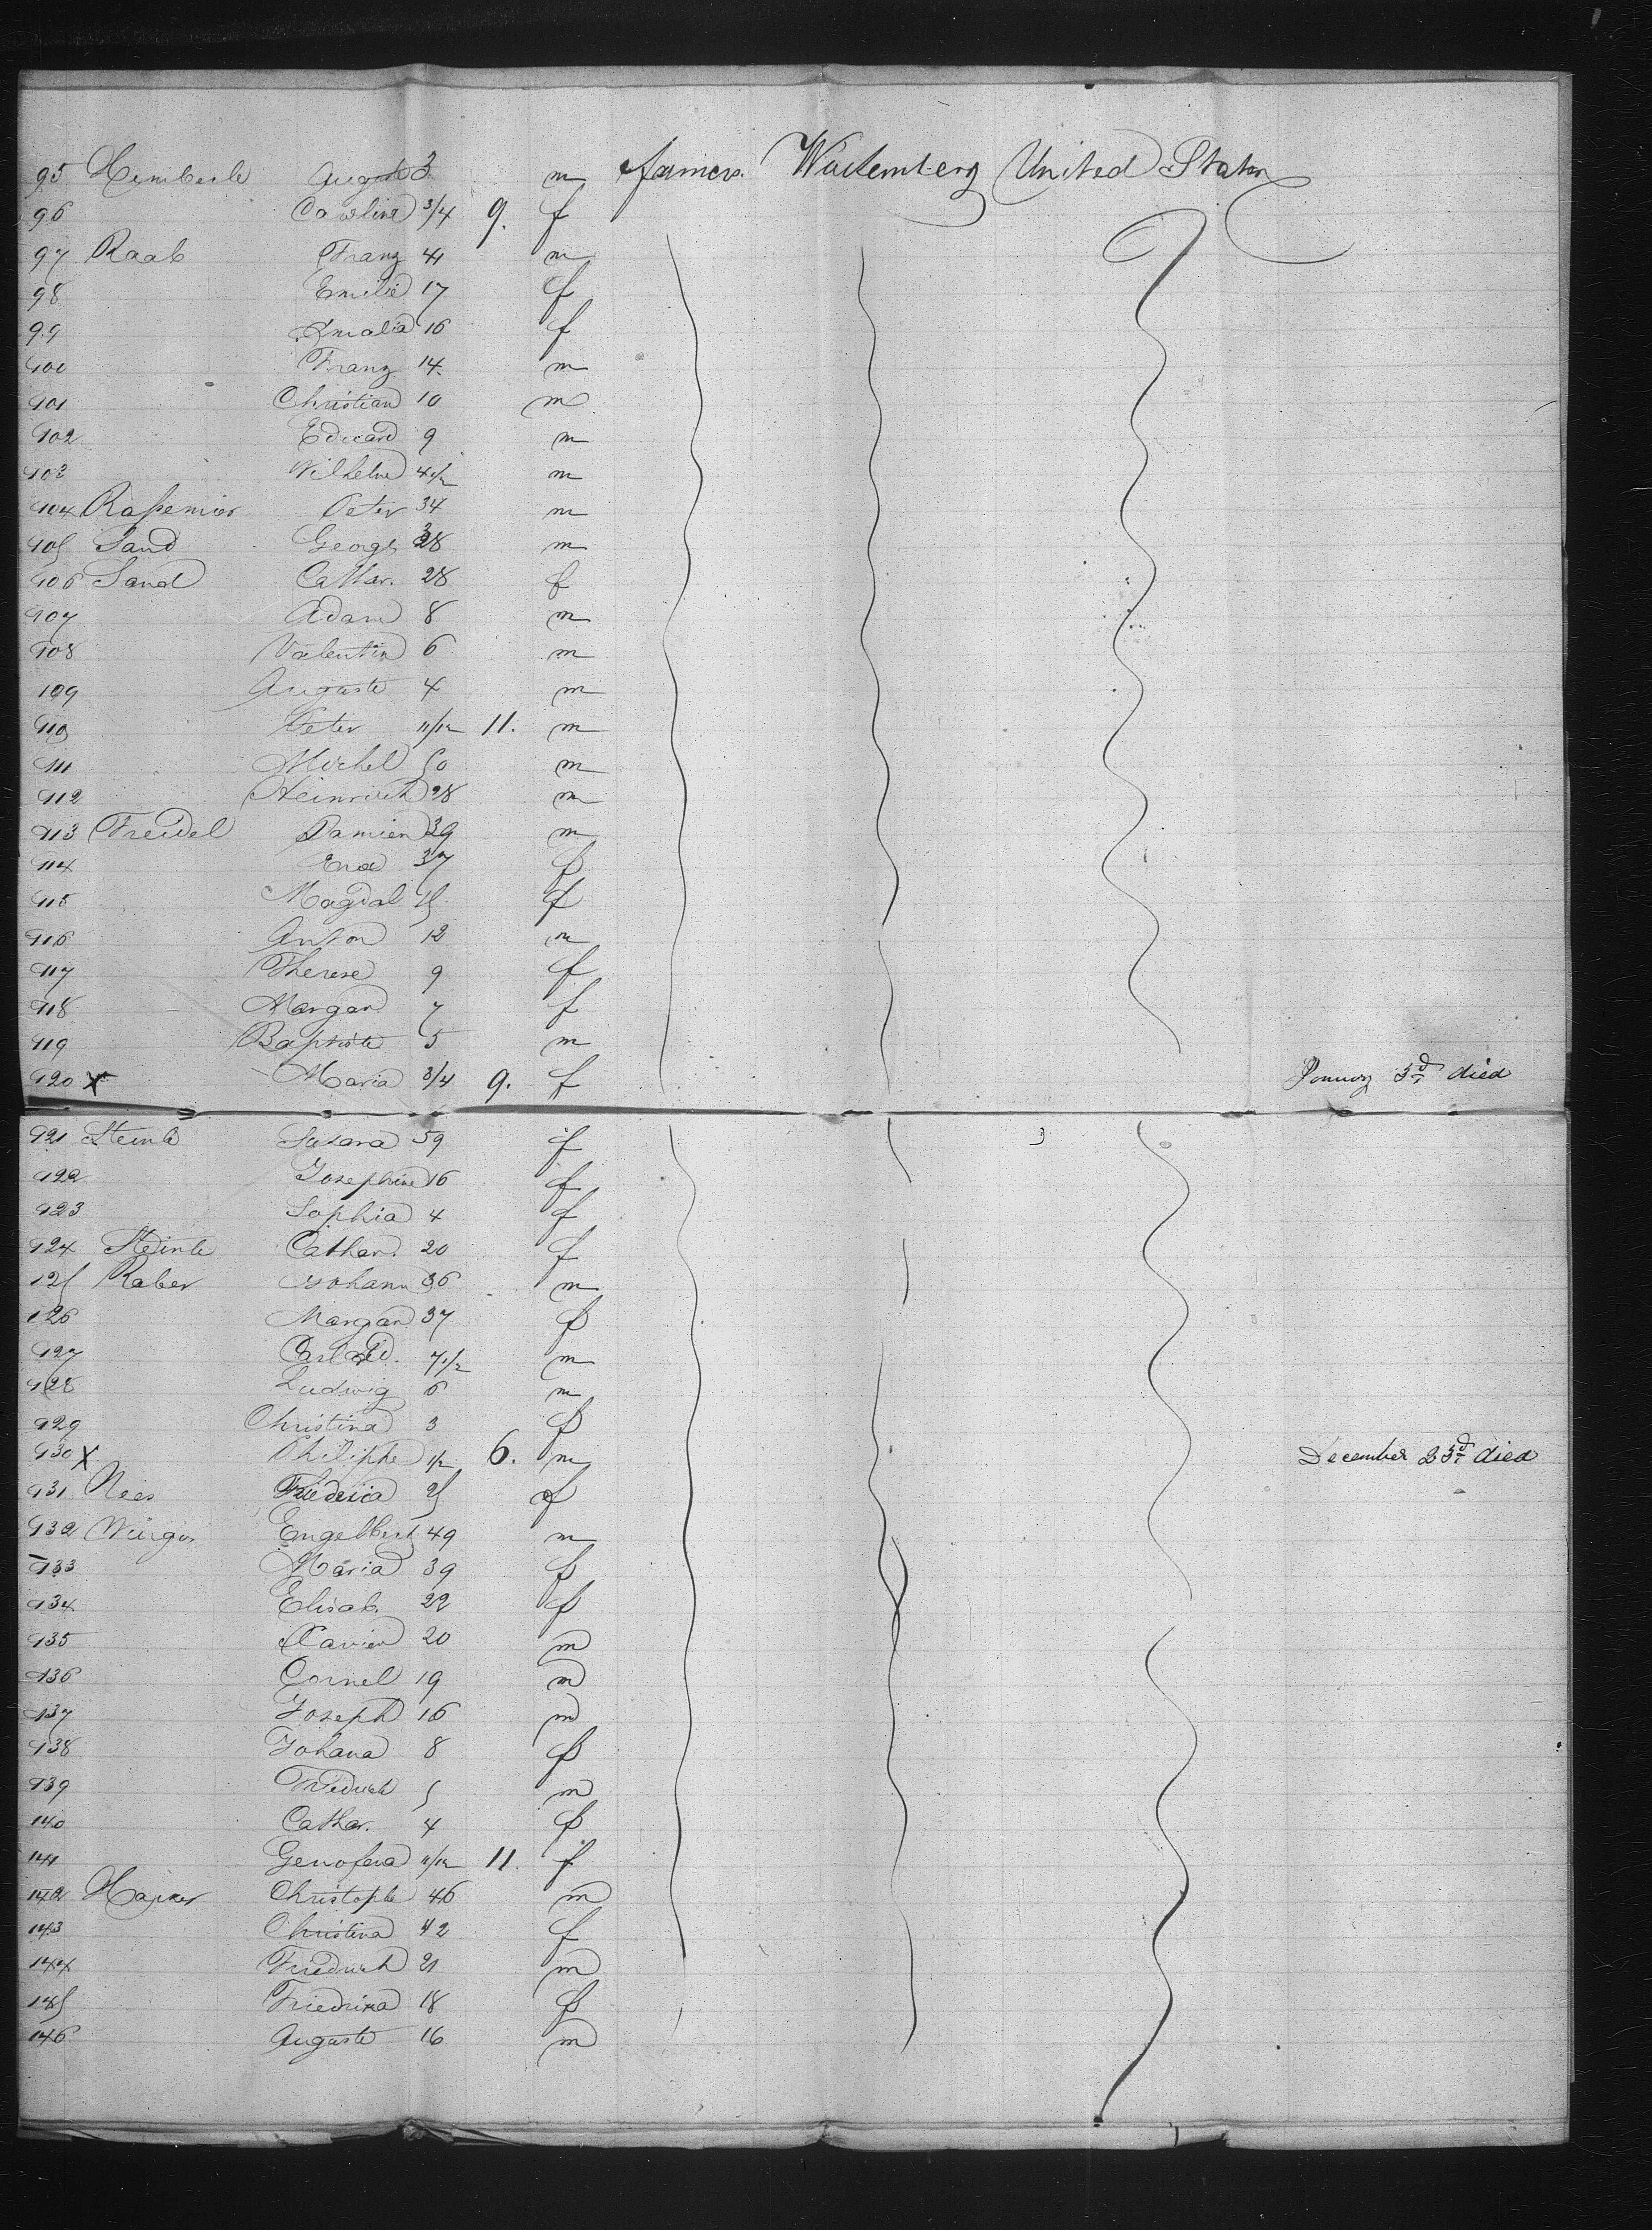 95 Himberle August 3 m farmers. Würtemberg United States
96 Caroline 3/4 9. f
97 Raab Franz 41 m
98 Emilie 17 f
99 Amalia 16 f
100 Franz 14 m
101 Christian 10 m
102 Eduard 9 m
103 Wilhelm 4 1/2 m
104 Peter 34 m
105 Sand Georg 38 m
106 Sand Cathar. 28 f
107 Adam 8 m
108 Valentin 6 m
109 Auguste 4 m
110 Peter 11/12 11. m
111 Michel 50 m
112 Heinrich 28 m
113 Freidel Damien 39 m
114 Eva 37 f
115 Magdal 15 f
116 Anton 12 m
117 Therese 9 f
118 Margar 7 f
119 Baptiste 5 m
120 x Maria 3/4 9. f January 3d died
121 Steinle Susana 59 f
122 Josephine 16 f
123 Sophia 4 f
124 Steinle Cathar. 20 f
125 Raber Johann 36 m
126 Margar 37 f
127 7 1/2 m
128 Ludwig 6 m
129 Christina 3 f
130 x Philippe 1/2 6. m December 23d died
131 Nees Friederica 25 f
132 Engelbert 49 m
133 Maria 39 f
134 Elisab. 22 f
135 Xavier 20 m
136 Cornel 19 m
137 Joseph 16 m
138 Johana 8 f
139 Friedrich 5 m
140 Cathar. 4 f
141 Genofeva 11/12 11. f
142 Christoph 46 m
143 Christina 42 f
144 Friedrich 21 m
145 Friedrika 18 f
146 Auguste 16 m